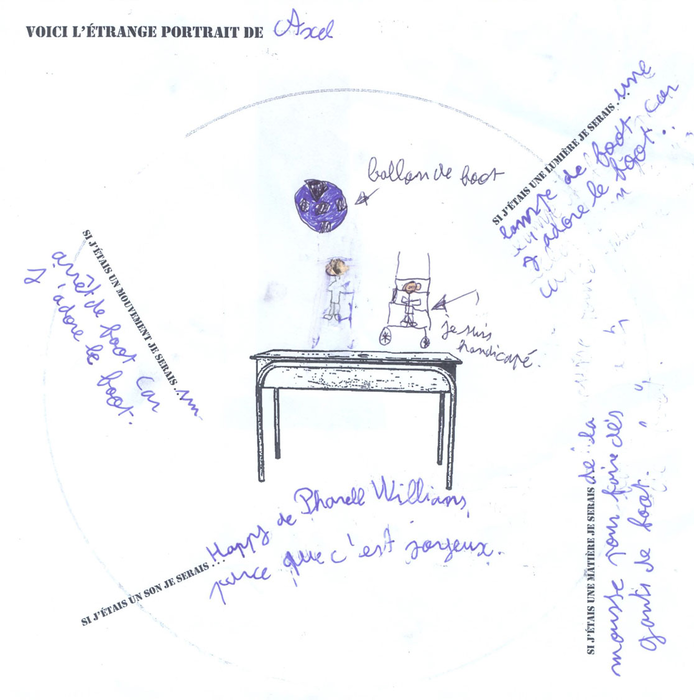 VOICI L'ÉTRANGE PORTRAIT DE Axel
ballon de foot
je suis
handicapé.
SI J'ÉTAIS UNE LUMIÈRE JE SERAIS... une
lampe de foot car
J'adore le foot.
SI J'ÉTAIS UN MOUVEMENT JE SERAIS... un
arrêt de foot car
J'adore le foot.
SI J'ÉTAIS UN SON JE SERAIS... Happy de Pharell Williams,
parce que c'est joyeux.
SI J'ÉTAIS UNE MATIÈRE JE SERAIS de la
mousse pour faire des
gants de foot.